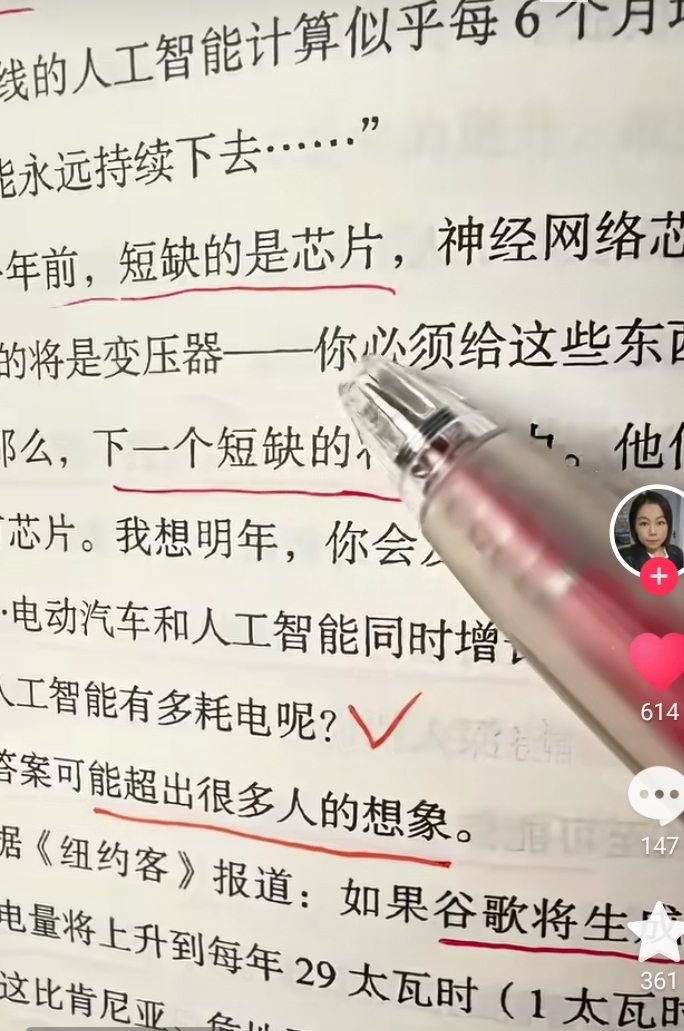 线的人工智能计算似乎每 6 个月
能永远持续下去……”
年前，短缺的是芯片，神经网络芯
的将是变压器——你必须给这些东西
那么，下一个短缺的 。他们
芯片。我想明年，你会
电动汽车和人工智能同时增长
人工智能有多耗电呢？
答案可能超出很多人的想象。
据《纽约客》报道：如果谷歌将生成
电量将上升到每年 29 太瓦时（1 太瓦时
这比肯尼亚、危地
614
147
361